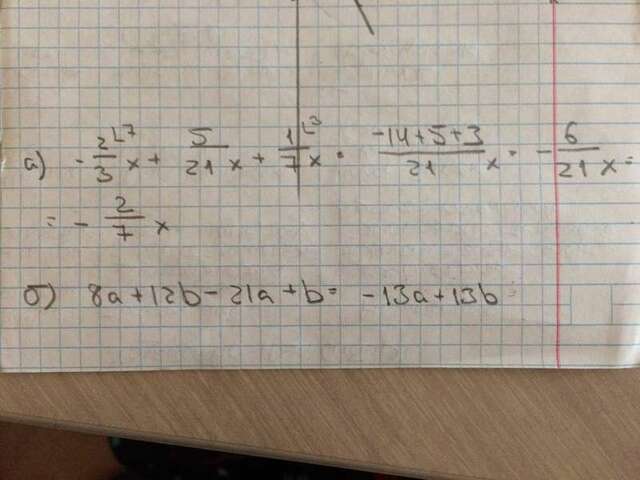 а) - 2/3 ∟7 x + 5/21 x + 1/7 ∟3 x = -14+5+3/21 x = - 6/21 x =
= - 2/7 x
б) 8a+12b-21a+b= -13a+13b